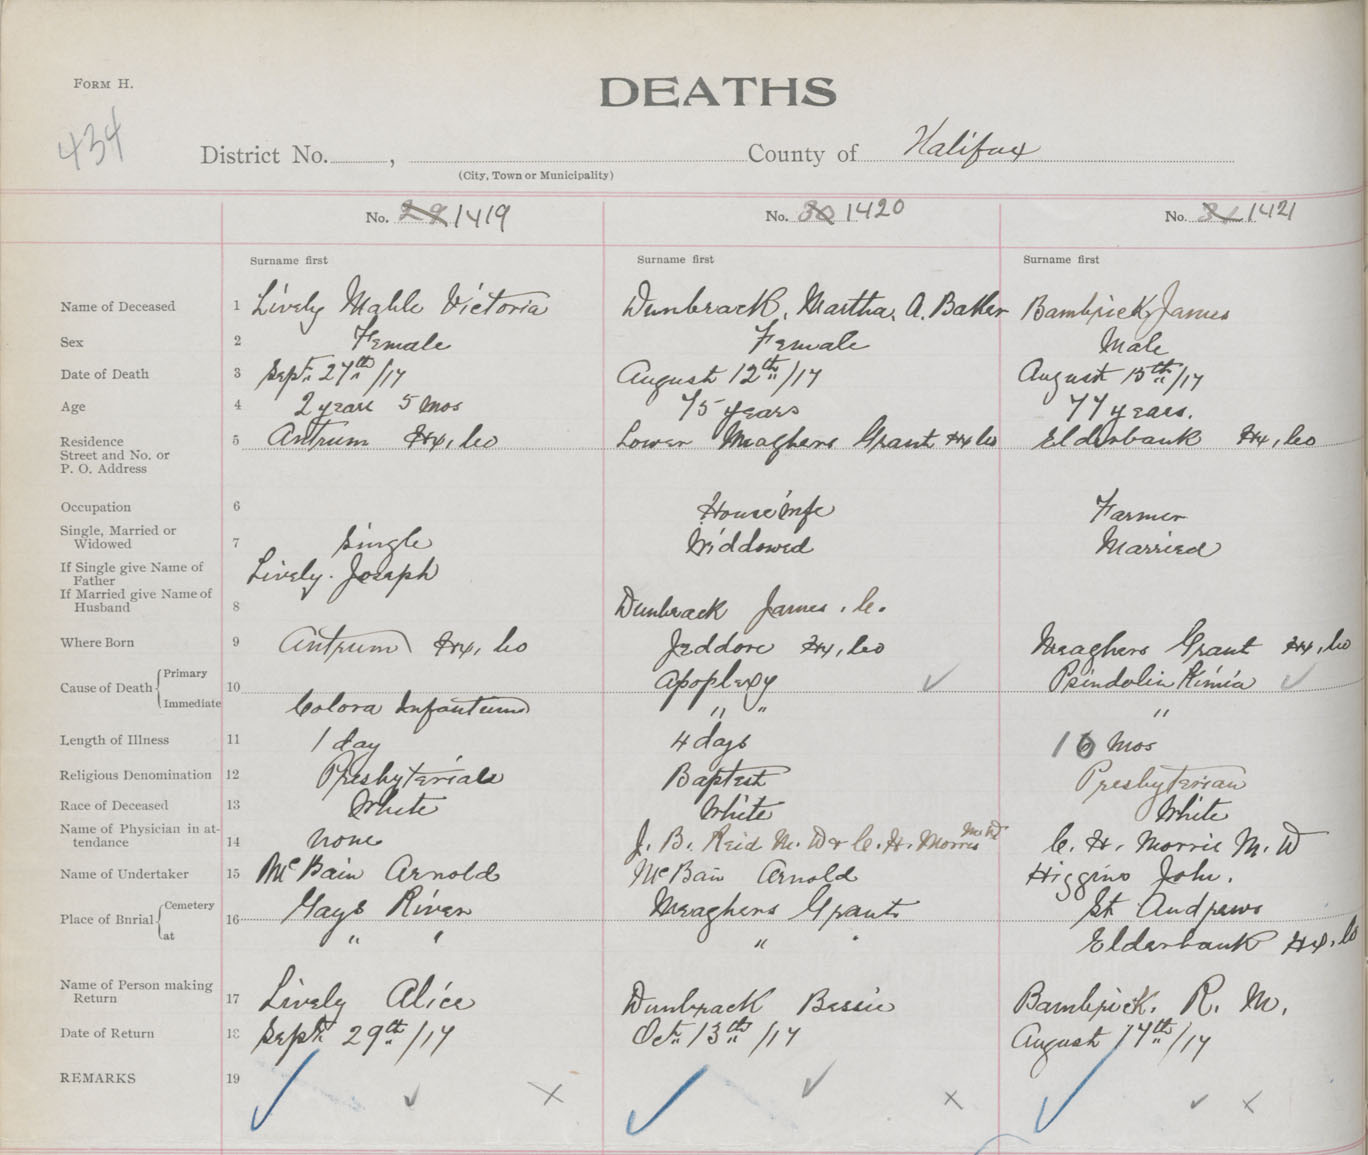 FORM H.
DEATHS
434
District No. , County of Halifax
(City, Town or Municipality)
No. 29 1419 No. 30 1420 No. 31 1421
Surname first Surname first Surname first
Name of Deceased 1 Lively Mable Victoria Dunbrack, Martha, A. Baker Bambrick, James
Sex 2 Female Female Male
Date of Death 3 Sept. 27th/17 August 12th/17 August 15th/17
Age 4 2 years 5 mos 75 years 77 years.
Residence 5 Antrum Hx, Co Lower Meaghers Grant Hx Co Elderbank Hx, Co
Street and No. or
P. O. Address
Occupation 6 Housewife Farmer
Single, Married or
Widowed 7 Single Widdowed Married
If Single give Name of
Father Lively. Joseph
If Married give Name of
Husband 8 Dunbrack James. C.
Where Born 9 Antrum Hx, Co Jeddore Hx, Co Meaghers Grant Hx, Co
Cause of Death Primary 10 Apoplexy
Immediate Colora Infantum " " "
Length of Illness 11 1 day 4 days 16 mos
Religious Denomination 12 Presbyterials Baptest Presbyterian
Race of Deceased 13 White White White
Name of Physician in at-
tendance 14 none J. B. Reid M. D & C. H. Morris M. D C. H. Morris M. D
Name of Undertaker 15 McBain Arnold McBain Arnold Higgins John.
Place of Burial Cemetery 16 Gays River Meaghers Grant St Andrews
at " " " " Elderbank Hx, Co
Name of Person making
Return 17 Lively Alice Dunbrack Bessie Bambrick. R. M.
Date of Return 18 Sept. 29th/17 Oct. 13th/17 August 17th/17
REMARKS 19